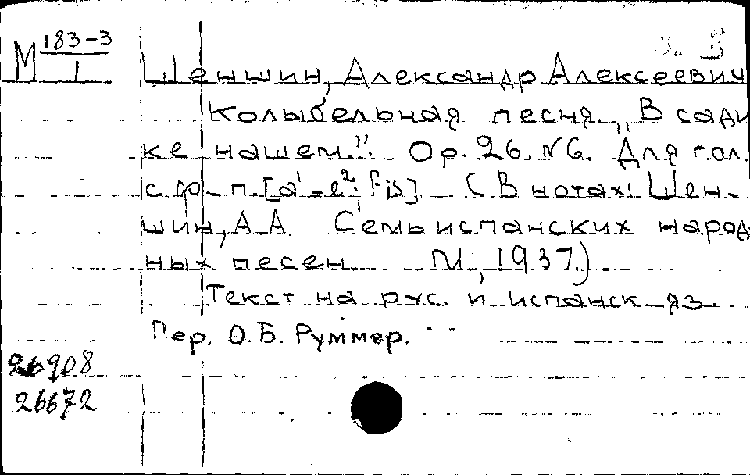 М 183-3
1
Шеншин, Александр Алексеевич
Колыбельная песня. „В сади
ке нашем." Op. 26, N 6. Для гол.
с ф-п. [a¹-e²; fis] (В нотах: Шен-
шин, А.А. Семь испанских народ
ных песен М., 1937.)
Текст на рус. и испанск яз.
Пер. О.Б. Руммер.
26908
26672